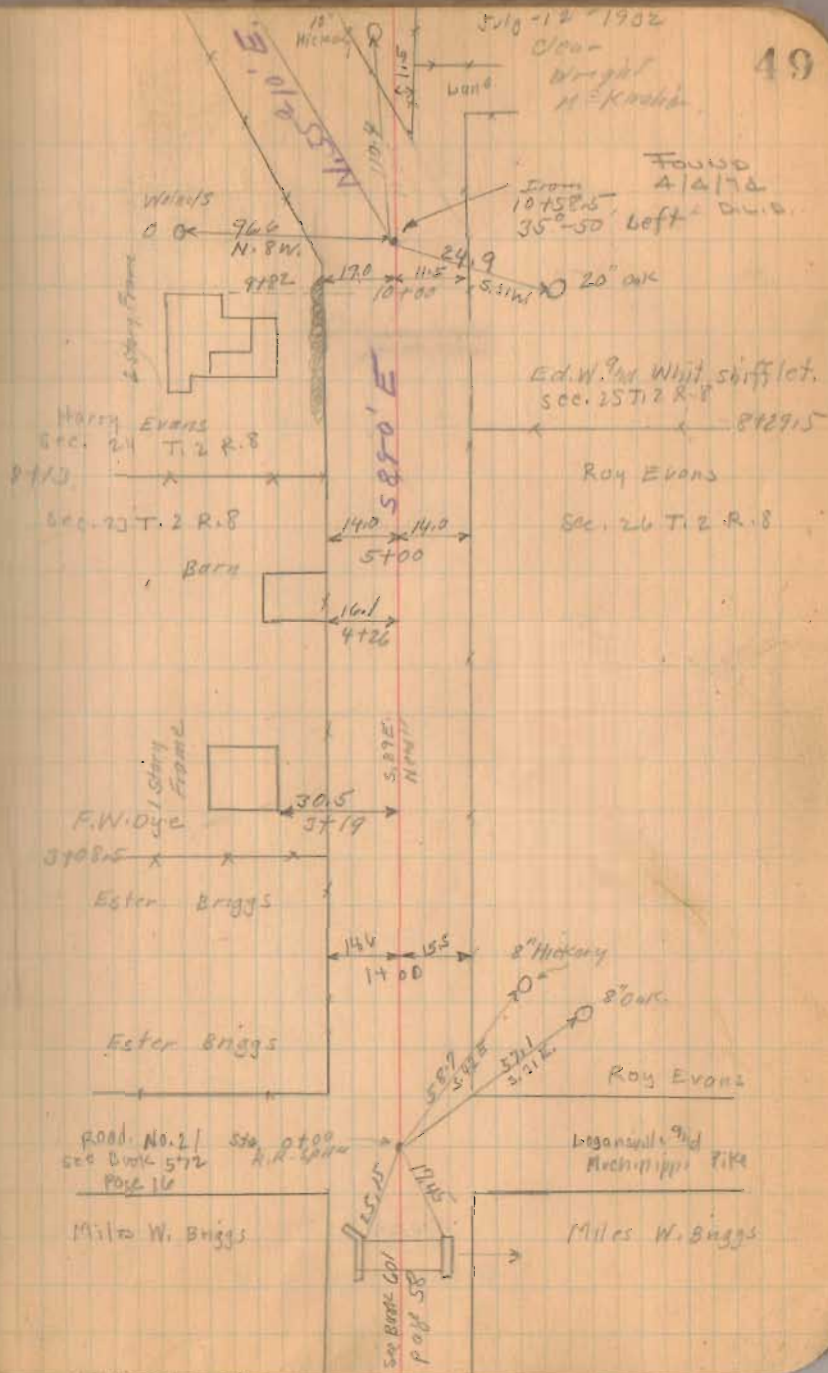 49
July-12-1932
Clear
Wright
10" Hickory
Lane
N.55°10'E.
110.4
FOUND
4/4/74
D.L.D.
Iron
10+58.5
35°-50' Left
Walnuts
96.6
N.8W.
24.9
S.31W.
20" oak
9+82
17.0
11.5
10+00
2 Story Frame
S89°0' E
Ed.W. and Whit Shifflet.
Sec. 25 T.2 R.8
8+29.5
Harry Evans
Sec. 24 T.2 R.8
8+13
Roy Evans
Sec. 23 T.2 R.8
Sec. 26 T.2 R.8
14.0
14.0
5+00
Barn
16.1
4+26
1 Story
Frame
S.89E.
30.5
3+19
F.W. Dye
3+08.5
Ester Briggs
14.6
15.5
1+00
8" Hickory
8" Oak.
58.7
57.1
Ester Briggs
Roy Evans
Road. No.21
See Book 572
Page 16
Sta. 0+00
R.R. Spike
Logansville and
Muchinippi Pike
25.15
17.45
Miles W. Briggs
Miles W. Briggs
See Book 601
page 58